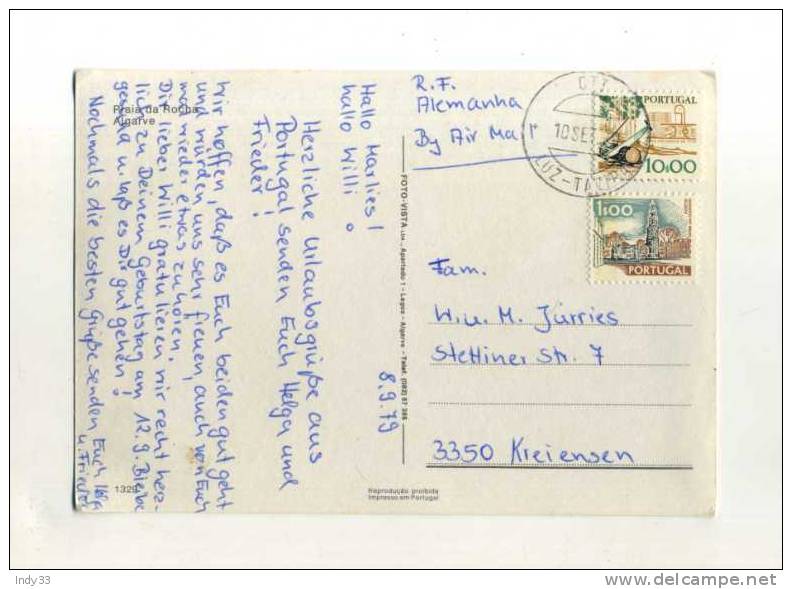 Praia da Rocha
Algarve
8.9.79
Hallo Marlies!
hallo Willi
Herzliche Urlaubsgrüße aus
Portugal senden Euch Helga und
Frieder!
Wir hoffen, daß es Euch beiden gut geht
und würden uns sehr freuen, auch von Euch
mal wieder etwas zu hören.
Dir lieber Willi gratulieren wir recht herz-
lich zu Deinem Geburtstag am 12.9. Bleibe
gesund u. laß es Dir gut gehen!
Nochmals die besten Grüße senden Euch Helga
u. Frieder
1329
FOTO-VISTA Lda., Apartado 1 - Lagos - Algarve - Telef. (082)
Reprodução proibida
Impresso em Portugal
R.F.
Alemanha
By Air Mail
CTT
10 SET
LUZ-TAVIRA
PORTUGAL
10$00
1$00
PORTUGAL
Fam.
W. u. M. Jürries
Stettiner Str. 7
3350 Kreiensen
Indy33
delcampe.net